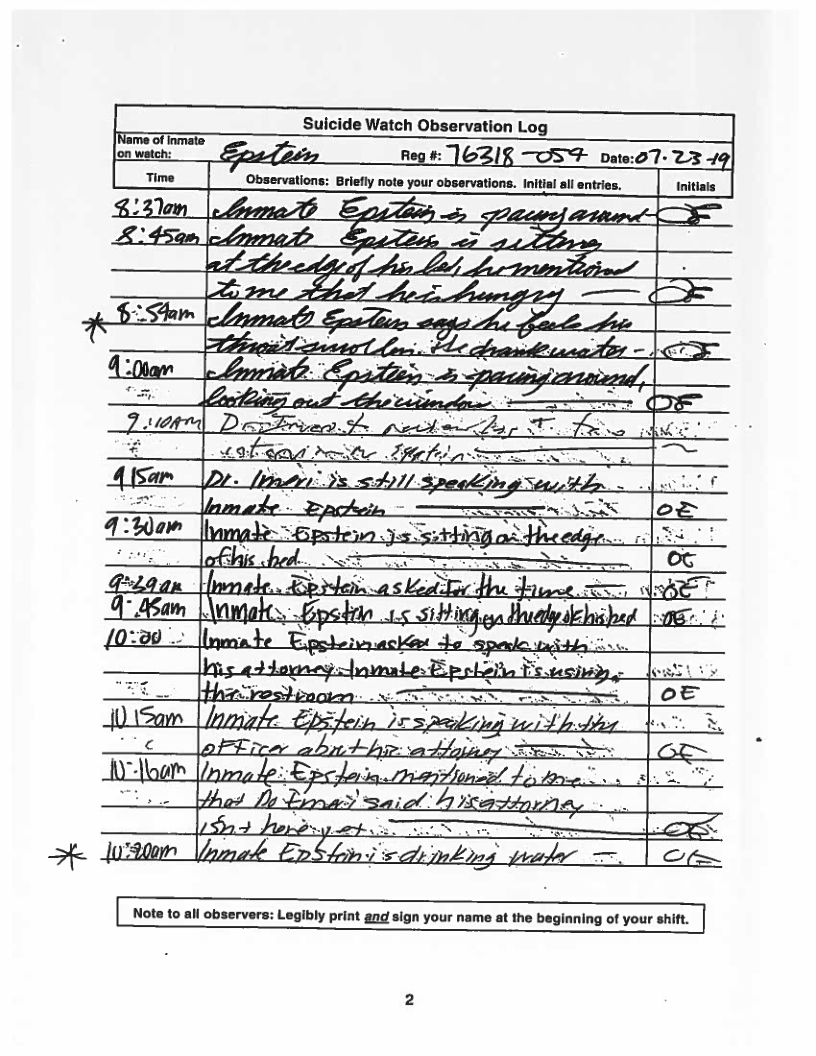 Suicide Watch Observation Log
Name of Inmate on watch: Epstein Reg #: 76318-054 Date: 07-23-19
Time Observations: Briefly note your observations. Initial all entries. Initials
8:37am Inmate Epstein is pacing around OE
8:45am Inmate Epstein is sitting
at the edge of his bed, he mentioned
to me that he is hungry OE
* 8:54am Inmate Epstein says he feels his
throat swollen. He drank water - OE
9:00am Inmate Epstein is pacing around,
looking out the window OE
9:10AM
9 15am Dr. Imeri is still speaking with
Inmate Epstein OE
9:30am Inmate Epstein is sitting on the edge
of his bed OE
9:39am Inmate Epstein asked for the time OE
9:45am Inmate Epstein is sitting on the edge of his bed OE
10:00 Inmate Epstein asked to speak with
his attorney. Inmate Epstein is using
the restroom OE
10 15am Inmate Epstein is speaking with the
officer about his attorney OE
10:16am Inmate Epstein mentioned to me
that said his attorney
isn't here yet OE
* 10:20am Inmate Epstein is drinking water OE
Note to all observers: Legibly print and sign your name at the beginning of your shift.
2